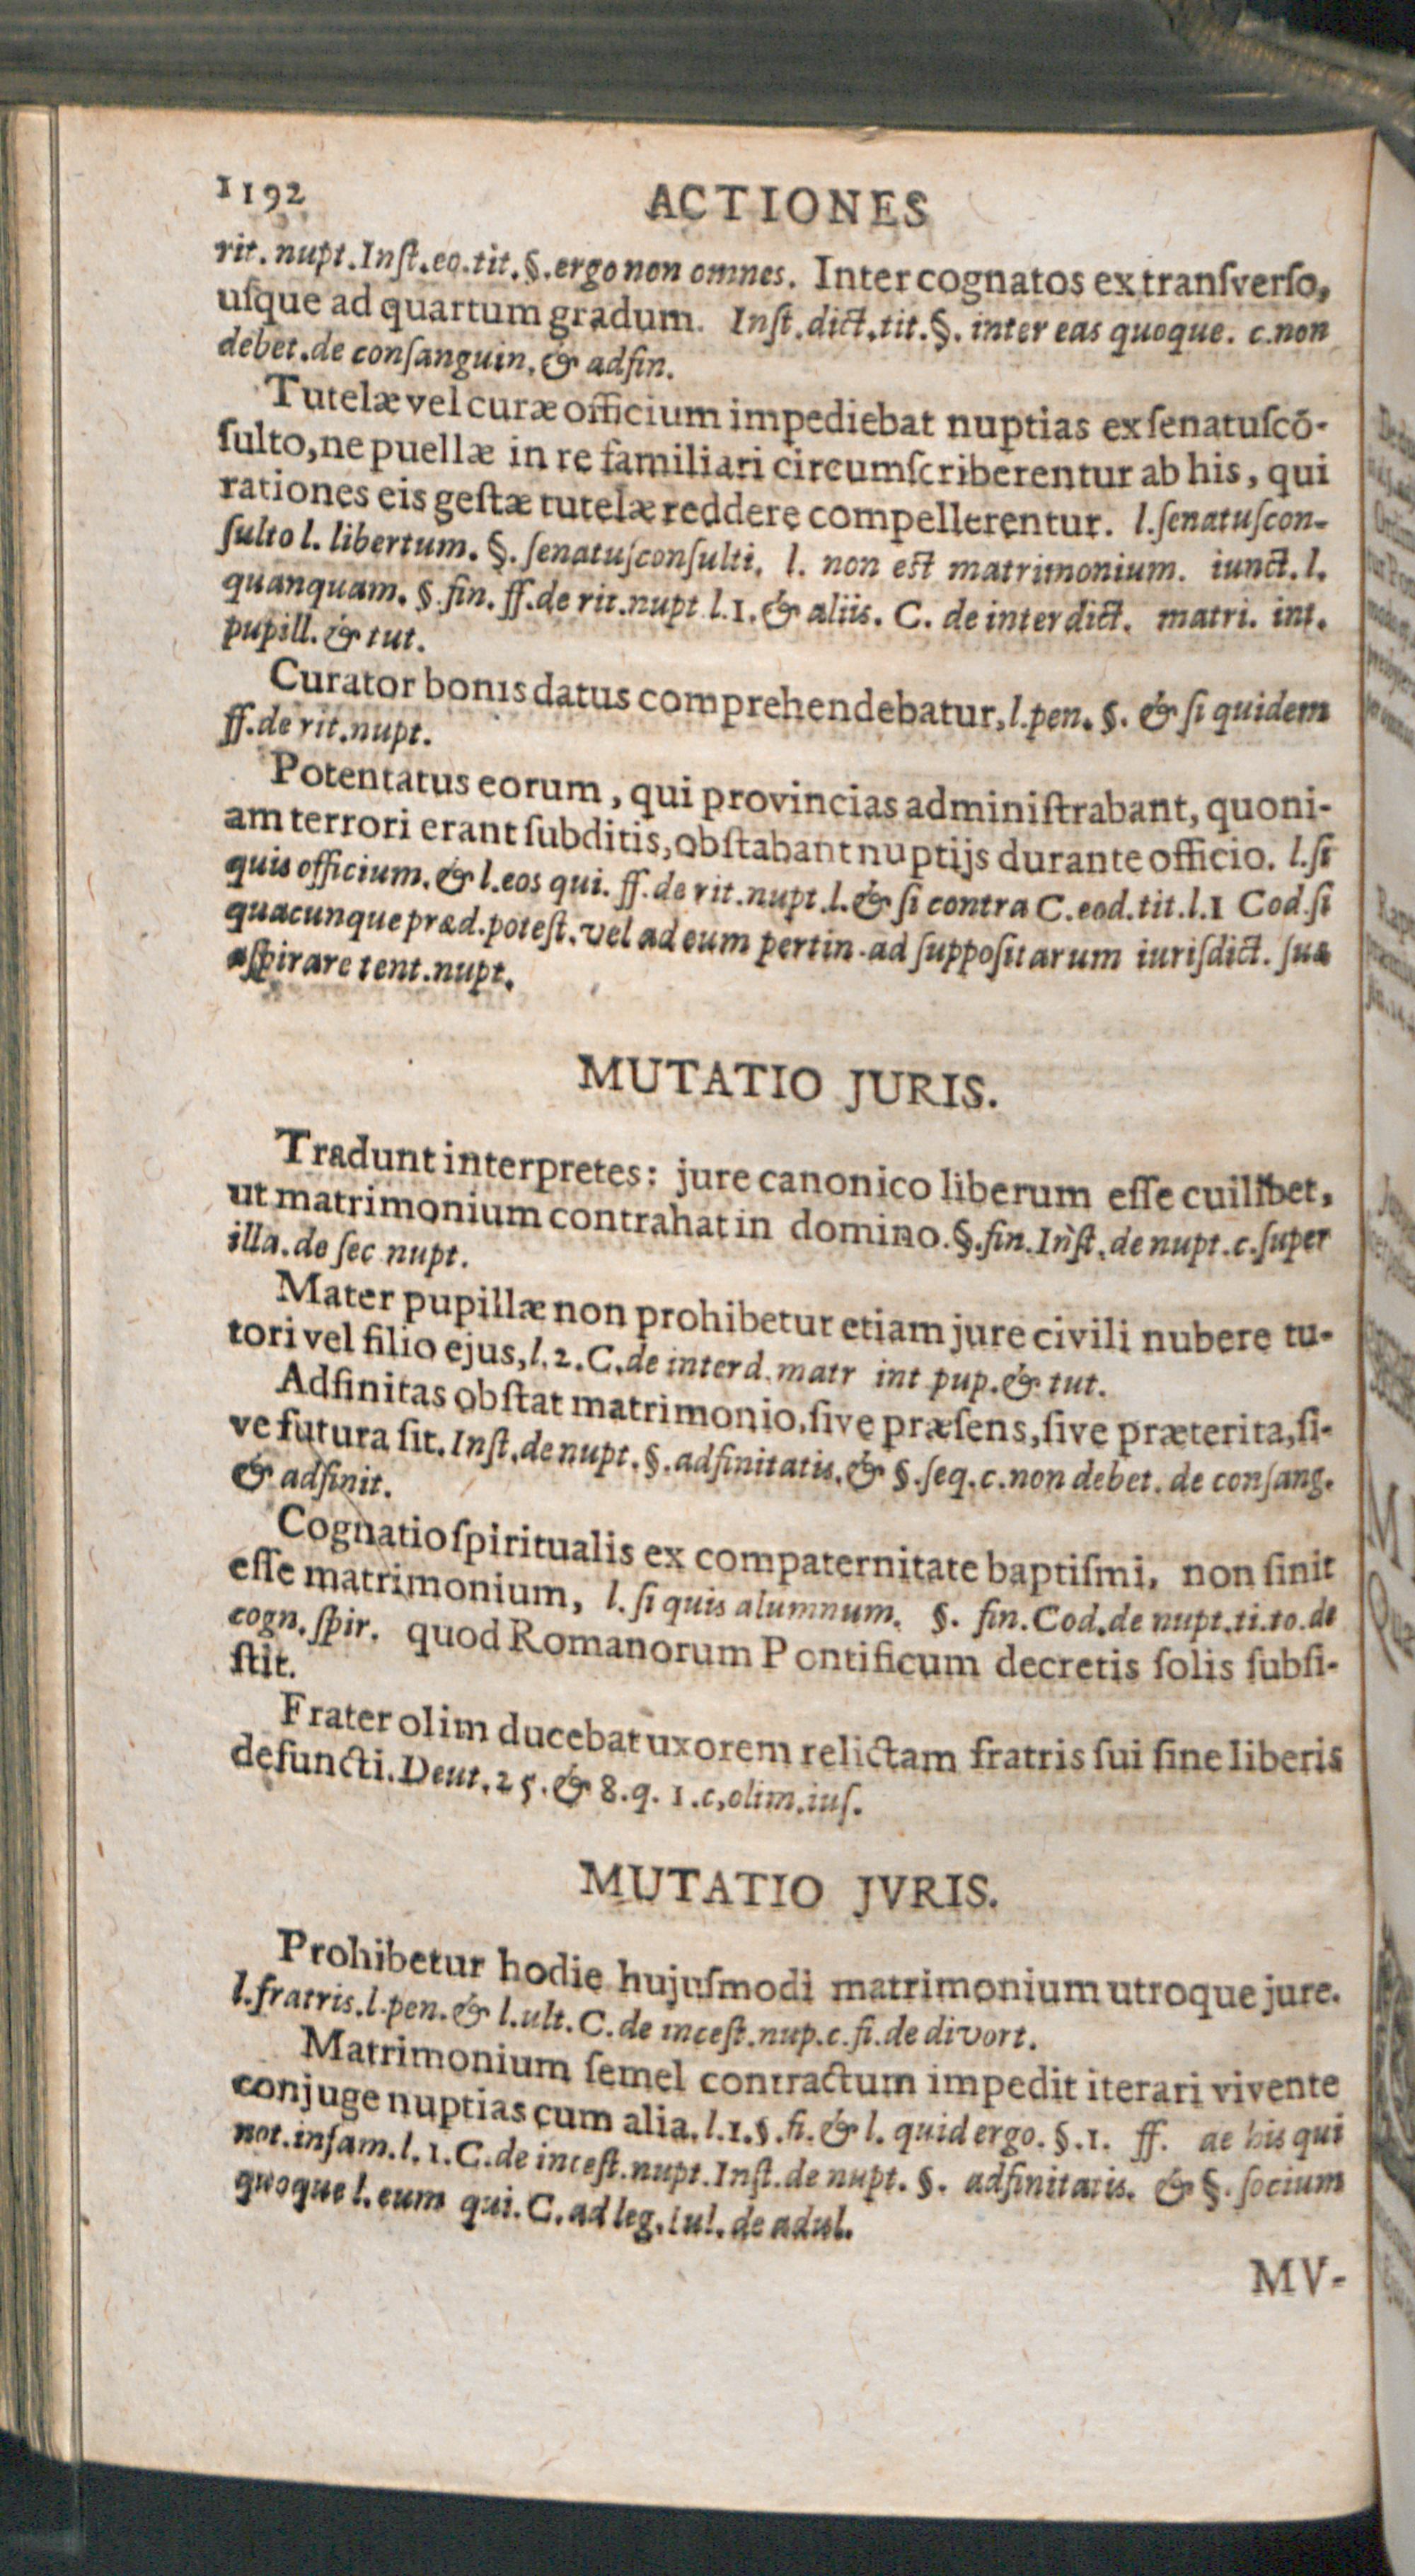 1192 ACTIONES
rit. nupt. Inſt. eo. tit. §. ergo non omnes. Inter cognatos ex tranſverſo,
uſque ad quartum gradum. Inſt. dict. tit. §. inter eas quoque. c. non
debet. de conſanguin. & adfin.
Tutelæ vel curæ officium impediebat nuptias ex ſenatuſcō-
ſulto, ne puellæ in re familiari circumſcriberentur ab his, qui
rationes eis geſtæ tutelæ reddere compellerentur. l. ſenatuſcon-
ſulto l. libertum. §. ſenatuſconſulti, l. non est matrimonium. iunct. l.
quanquam. §. fin. ff. de rit. nupt l. 1. & aliis. C. de interdict. matri. int.
pupill. & tut.
Curator bonis datus comprehendebatur, l. pen. §. & ſi quidem
ff. de rit. nupt.
Potentatus eorum, qui provincias adminiſtrabant, quoni-
am terrori erant ſubditis, obſtabant nuptijs durante officio. l. ſi
quis officium. & l. eos qui. ff. de rit. nupt. l. & ſi contra C. eod. tit. l. 1 Cod. ſi
quacunque præd. poteſt. vel ad eum pertin. ad ſuppoſitarum iuriſdict. ſua
aſpirare tent. nupt.
MUTATIO JURIS.
Tradunt interpretes: jure canonico liberum eſſe cuilibet,
ut matrimonium contrahat in domino. §. fin. Inſt. de nupt. c. ſuper
illa. de ſec nupt.
Mater pupillæ non prohibetur etiam jure civili nubere tu-
tori vel filio ejus, l. 2. C. de interd. matr int pup. & tut.
Adfinitas obſtat matrimonio, ſive præſens, ſive præterita, ſi-
ve futura ſit. Inſt. de nupt. §. adfinitatis. & §. ſeq. c. non debet. de conſang.
& adfinit.
Cognatio ſpiritualis ex compaternitate baptiſmi, non ſinit
eſſe matrimonium, l. ſi quis alumnum. §. fin. Cod. de nupt. ti. to. de
cogn. ſpir. quod Romanorum Pontificum decretis ſolis ſubſi-
ſtit.
Frater olim ducebat uxorem relictam fratris ſui ſine liberis
defuncti. Deut. 25. & 8. q. 1. c, olim. iuſ.
MUTATIO JVRIS.
Prohibetur hodie hujuſmodi matrimonium utroque jure.
l. fratris. l. pen. & l. ult. C. de inceſt. nup. c. fi. de divort.
Matrimonium ſemel contractum impedit iterari vivente
conjuge nuptias cum alia. l. 1. §. fi. & l. quid ergo. §. 1. ff. de his qui
not. infam. l. 1. C. de inceſt. nupt. Inſt. de nupt. §. adfinitatis. & §. ſocium
quoque l. eum qui. C. ad leg. Iul. de adul.
MV-